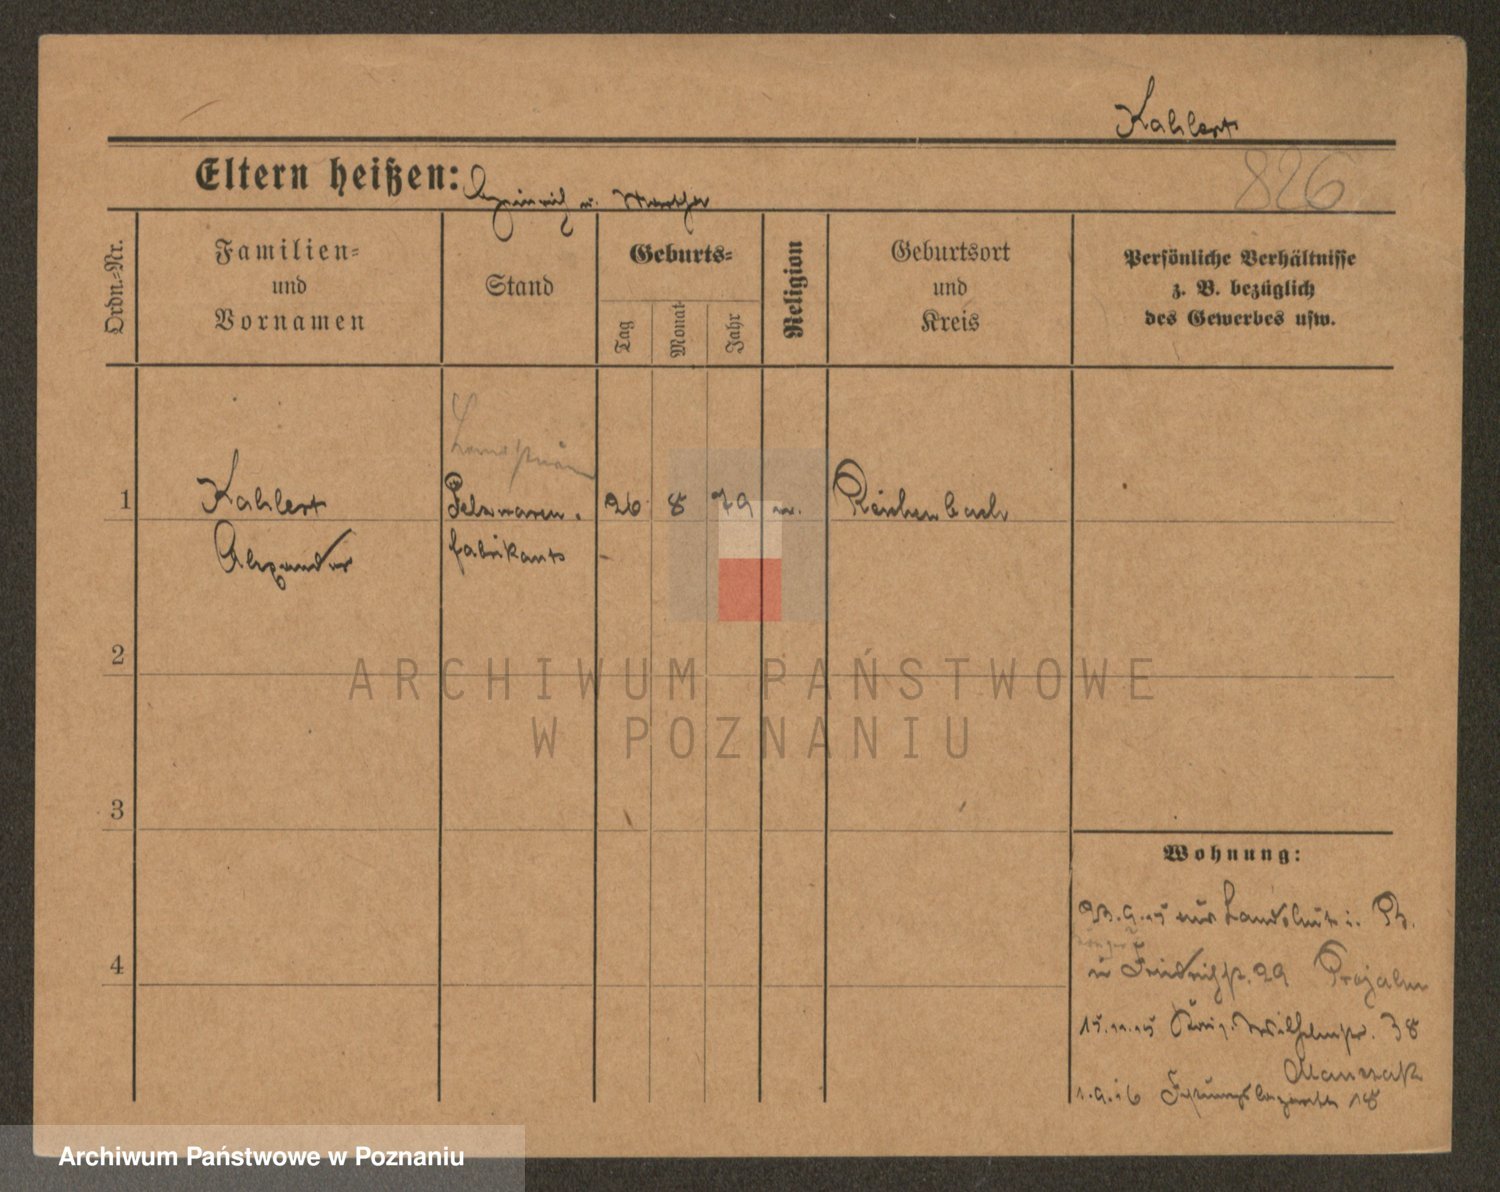 Kahlert
826
Eltern heißen: Heinrich u. Martha
Ordn.-Nr.
Familien-
und
Vornamen
Stand
Geburts-
Tag
Monat
Jahr
Religion
Geburtsort
und
Kreis
Persönliche Verhältnisse
z. B. bezüglich
des Gewerbes usw.
1
Kahlert
Alexander
Pelzwaren-
fabrikant
26 8 79
Reichenbach
2
3
4
Wohnung:
23.9.15 aus Landshut i.
Friedrichstr. 29
15.11.15 König. Wilhelmstr. 38
1.9.16 Festungslazarett 18
ARCHIWUM PAŃSTWOWE
W POZNANIU
Archiwum Państwowe w Poznaniu